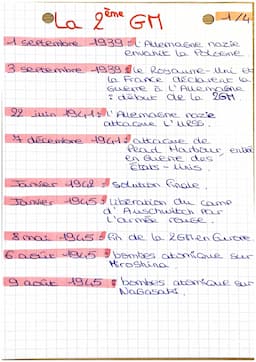 La 2ème GM
1/4
1 septembre 1939 : l'Allemagne nazie
envahit la Pologne
3 septembre 1939 : le Royaume-Uni et
la France déclarent la
guerre à l'Allemagne
: début de la 2GM.
22 juin 1941 : l'Allemagne nazie
attaque l'URSS.
7 décembre 1941 : attaque de
Pearl Harbour, entrée
en guerre des
États-Unis.
Janvier 1942 : solution finale.
Janvier 1945 : libération du camp
d'Auschwitch par
l'armée rouge.
8 mai 1945 : fin de la 2GM en Europe.
6 août 1945 : bombes atomique sur
Hiroshima.
9 août 1945 : bombes atomique sur
Nagasaki.